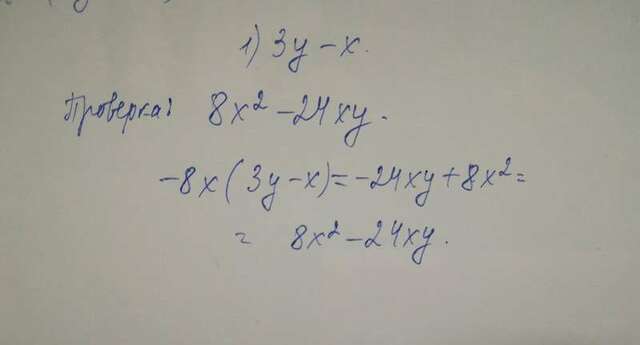 1) 3y - x.
Проверка: 8x² - 24xy.
-8x(3y-x)=-24xy+8x²=
= 8x² - 24xy.